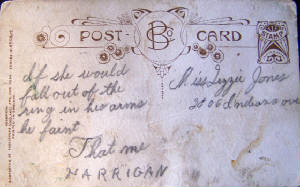 POST CARD
BS Co
STAMP
If she would
fall out of the
ring in his arms
he faint
That me
HARRIGAN
Miss Lizzie Jones
2106 Indiana ave